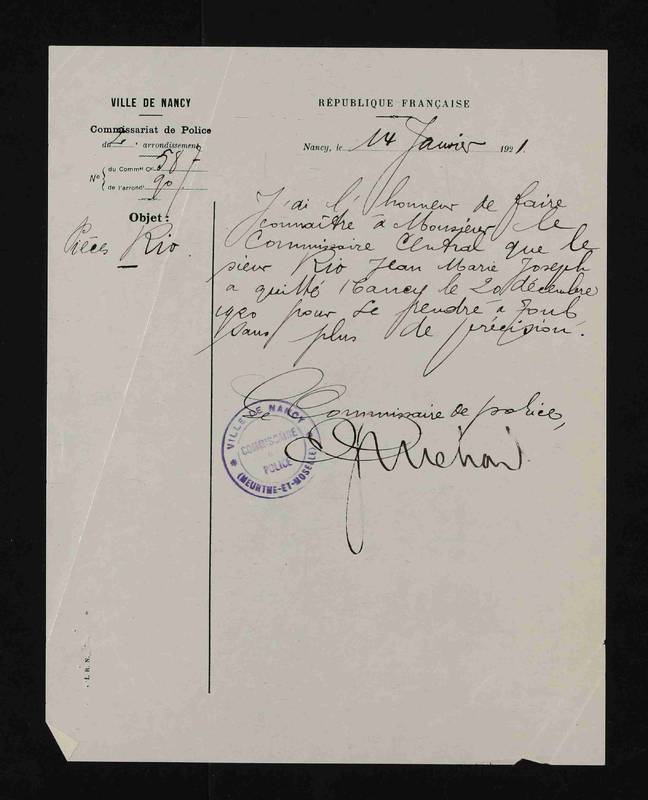 VILLE DE NANCY
Commissariat de Police
du 2 . arrondissement
Nº du Commre Cal 587
de l'arrondt 90
Objet :
Pièces Rio.
RÉPUBLIQUE FRANÇAISE
Nancy, le 14 Janvier 1921.
J'ai l'honneur de faire
connaître à Monsieur le
Commissaire Central que le
sieur Rio Jean Marie Joseph
a quitté Nancy le 20 décembre
1920 pour se rendre à Toul
sans plus de précision.
Le Commissaire de police,
VILLE DE NANCY
COMMISSAIRE
DE
POLICE
(MEURTHE-ET-MOSELLE)
I. R. N.